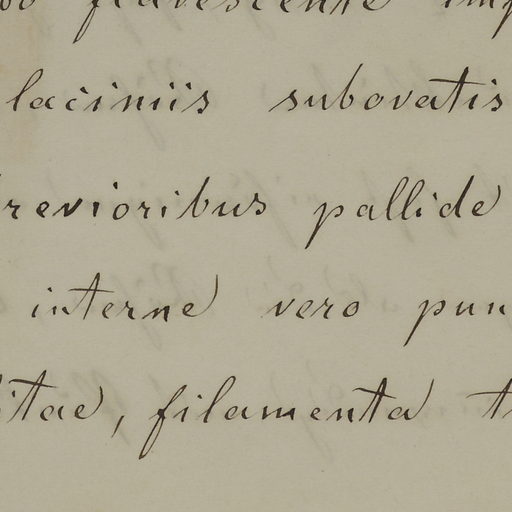 flavescente
laciniis subovatis
revioribus pallide
interne vero pun
itae, filamenta t